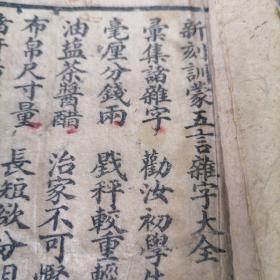 新刻訓蒙五言雜字大全
彙集諸雜字 勸汝初學
毫厘分錢兩 戥秤較重輕
油鹽茶醬醋 治家不可
布帛尺寸量 長短欲分